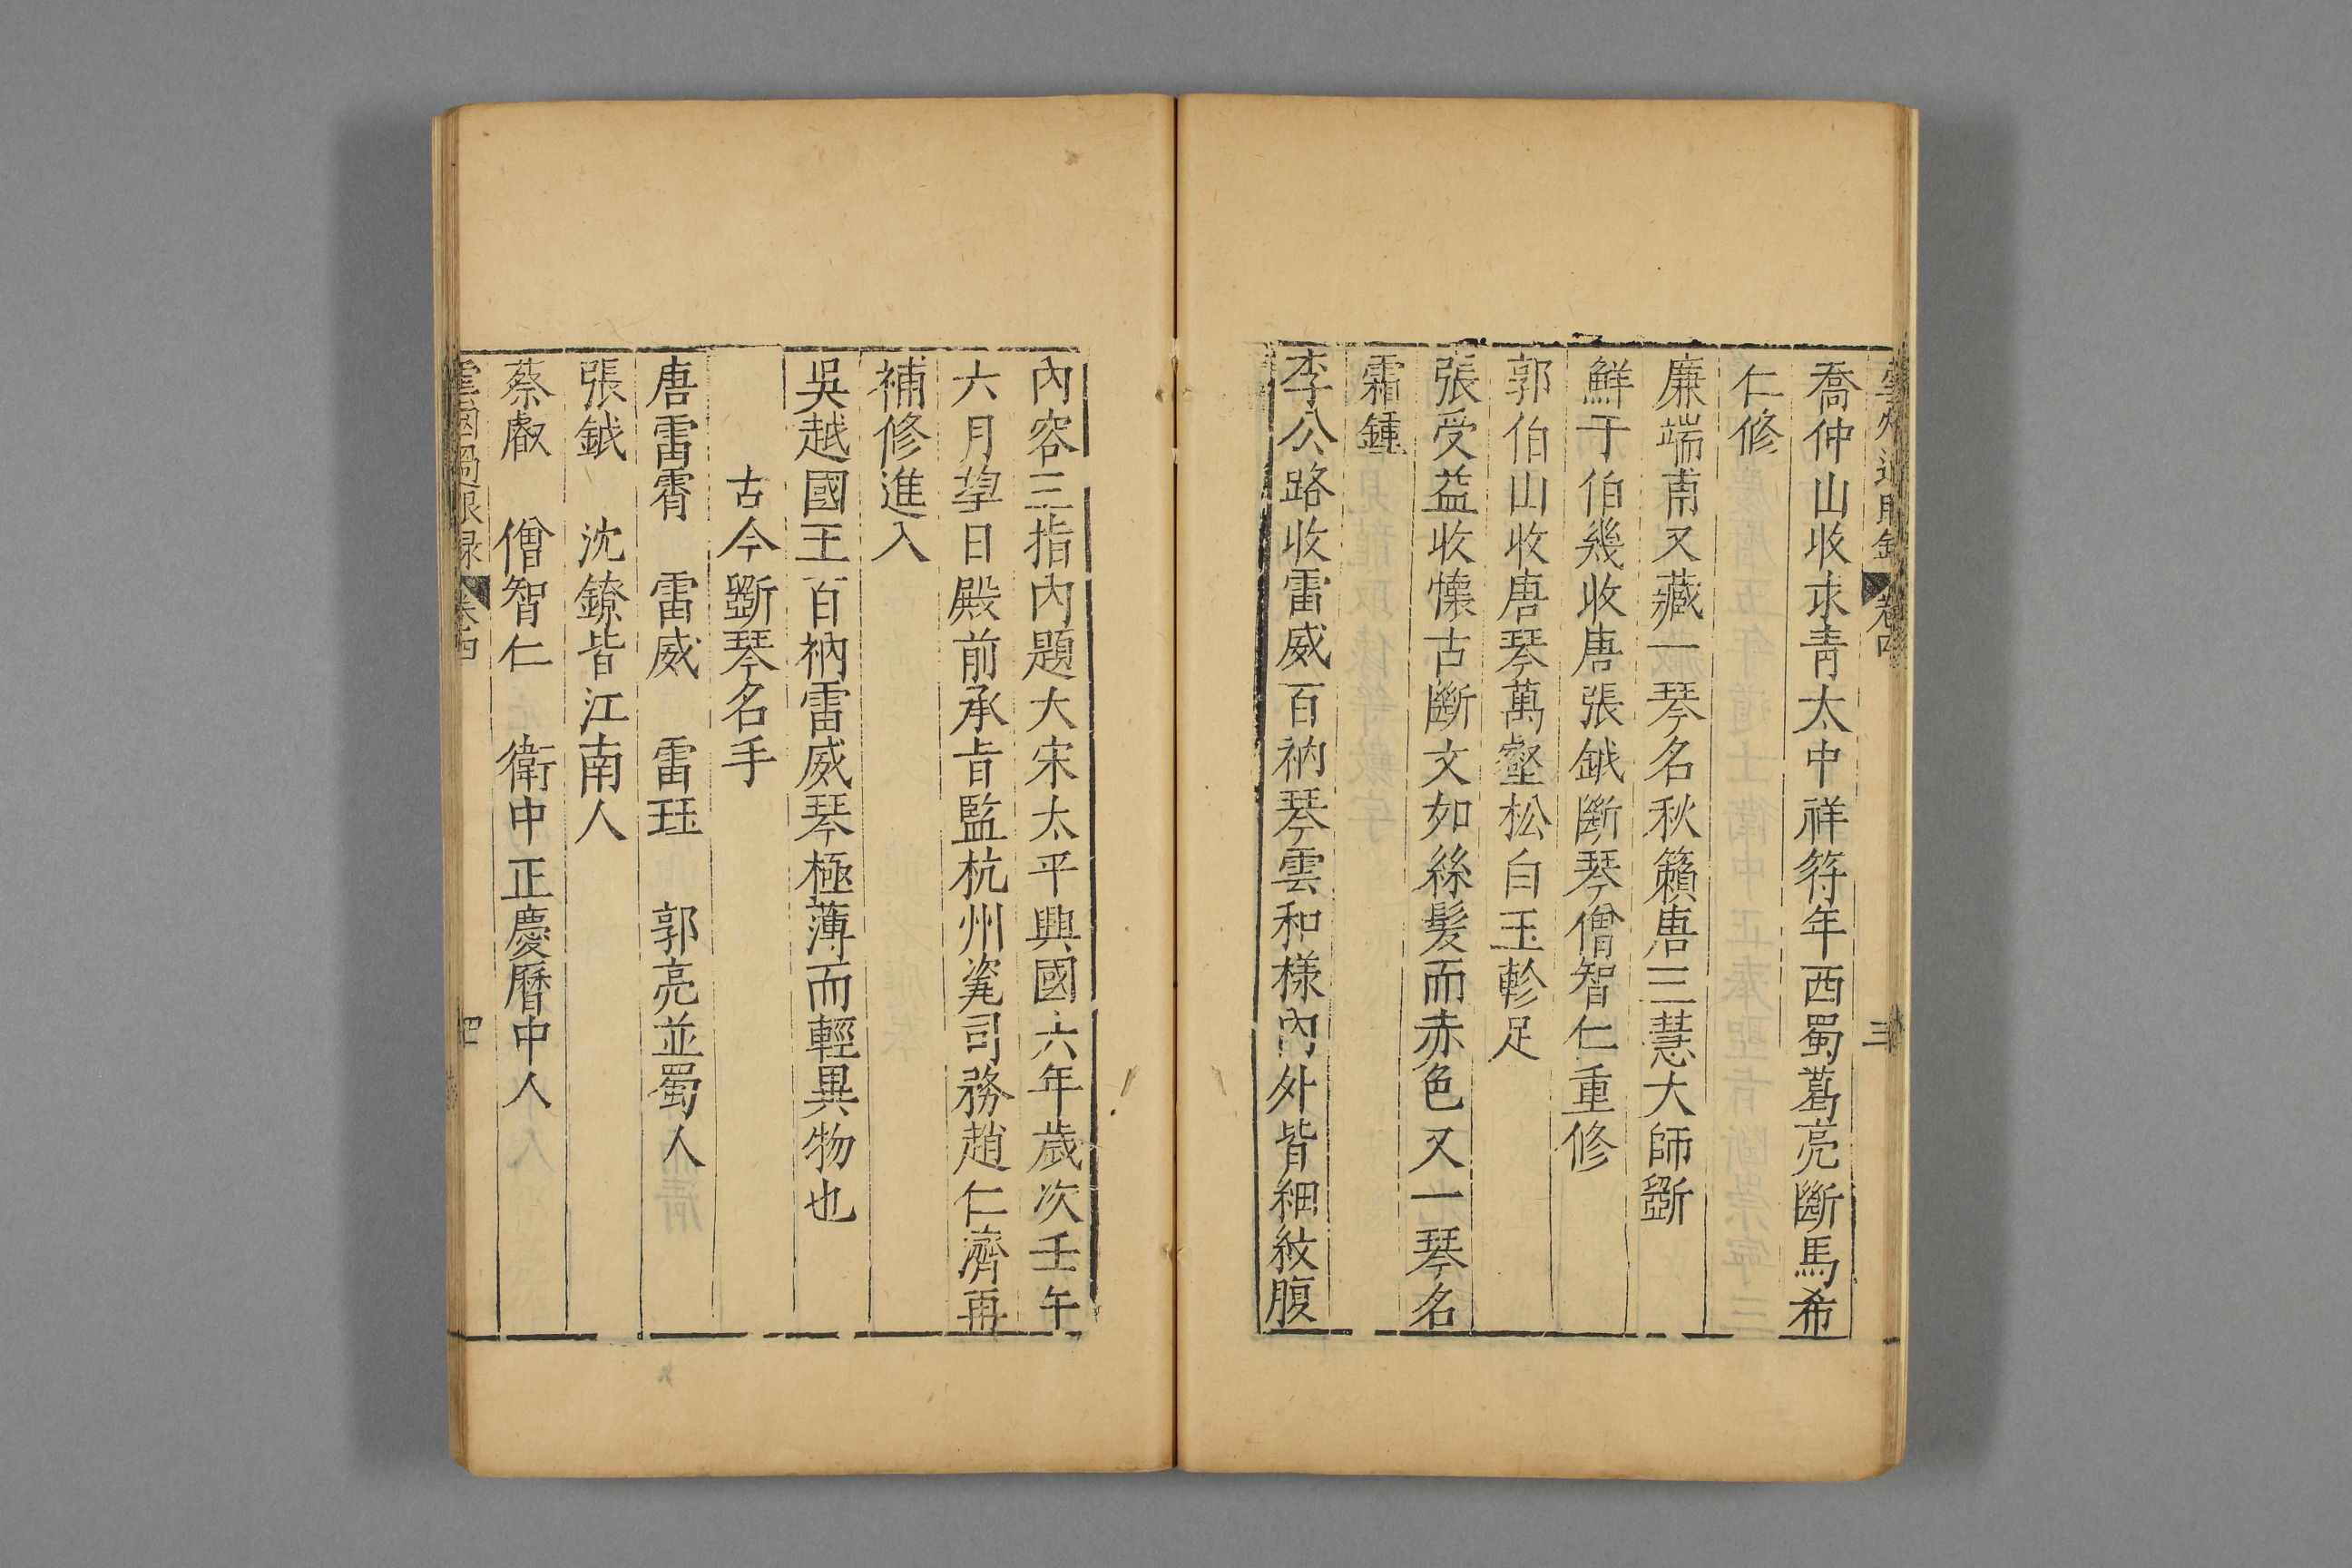 雲烟過眼錄 卷四 三
喬仲山收朩青太中祥符年西蜀葛亮斷馬希
仁修
廉端甫又藏一琴名秋籟唐三慧大師斵
鮮于伯幾收唐張鉞斷琴僧智仁重修
郭伯山收唐琴萬壑松白玉軫足
張受益收懷古斷文如絲髮而赤色又一琴名
霜鍾
李公路收雷威百衲琴雲和樣內外皆細紋腹
內容三指內題大宋太平興國六年歲次壬午
六月望日殿前承旨監杭州瓷司務趙仁濟再
補修進入
吳越國王百衲雷威琴極薄而輕異物也
古今斵琴名手
唐雷霄 雷威 雷珏 郭亮並蜀人
張鉞 沈鐐皆江南人
蔡叡 僧智仁 衛中正慶曆中人
雲烟過眼錄 卷四 四